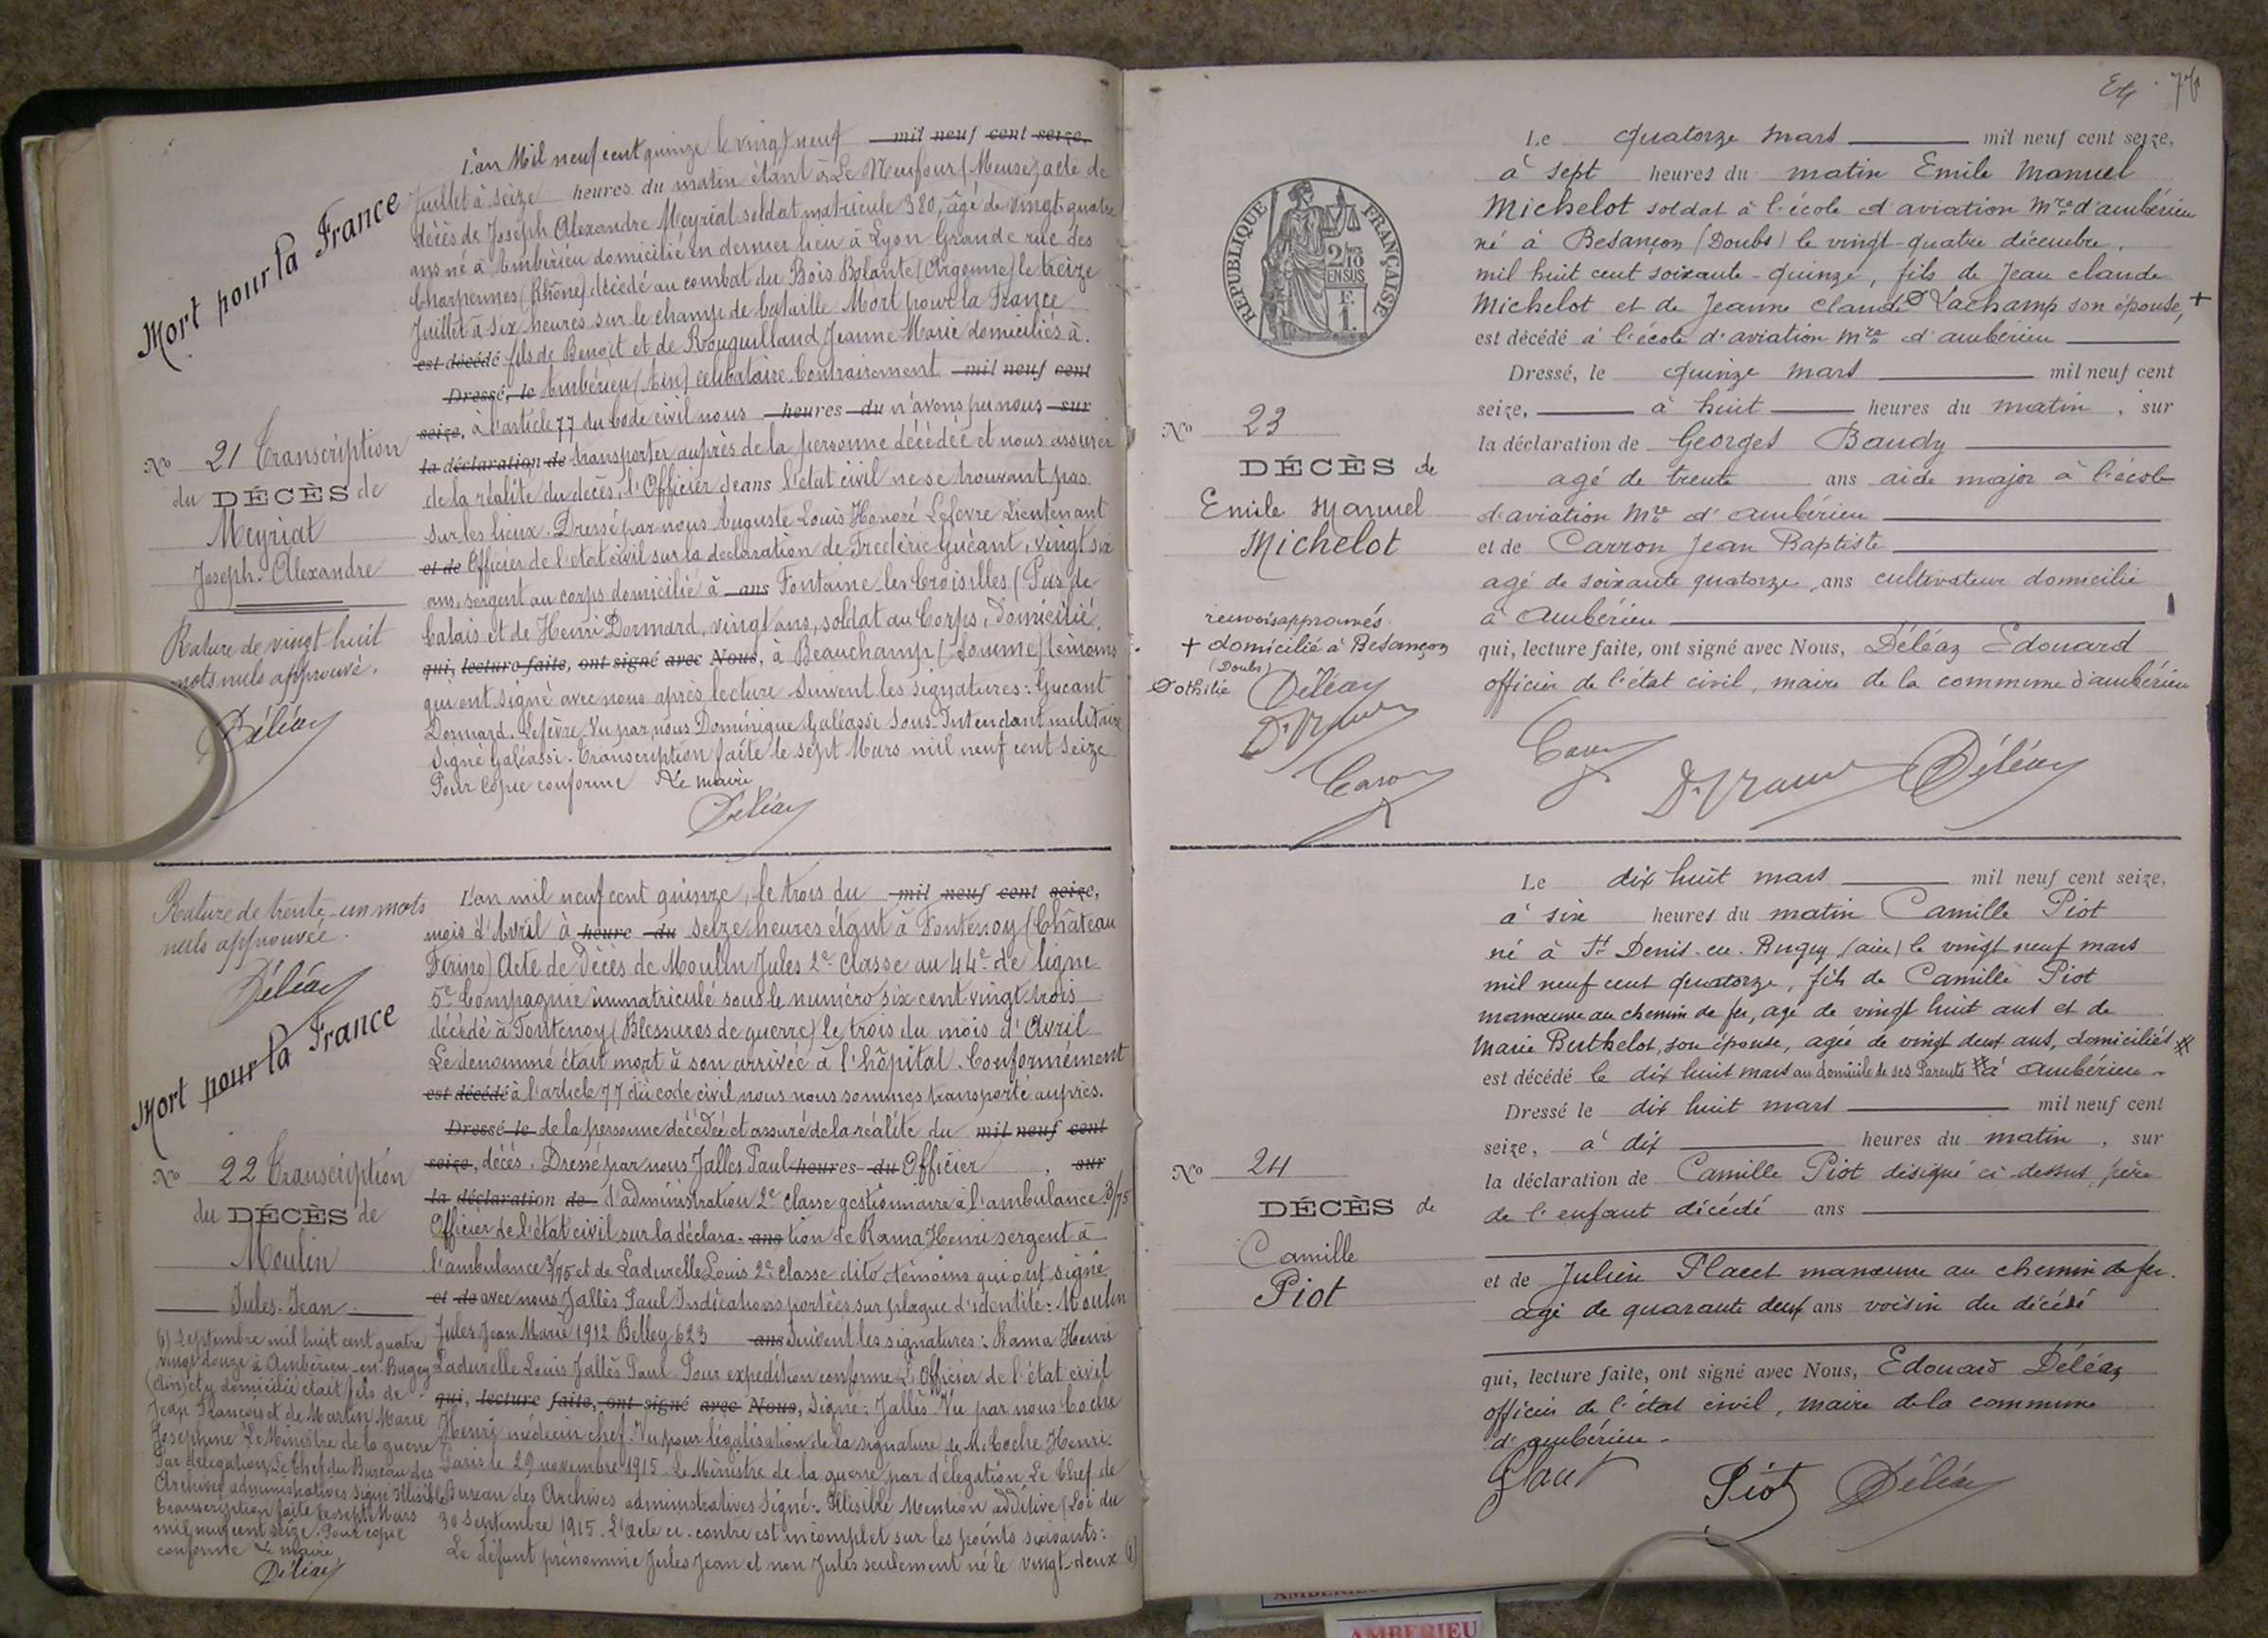 Mort pour la France
L'an Mil neuf cent quinze le vingt neuf mil neuf cent seize,
Juillet à seize heures du matin étant à Le Neufour (Meuse) acte de
décès de Joseph Alexandre Meyriat soldat matricule 380, âgé de vingt-quatre
ans né à Ambérieu domicilié en dernier lieu à Lyon Grande rue des
Charpennes (Rhône) décédé au combat du Bois Bolante (Argonne) le treize
Juillet à six heures sur le champ de bataille Mort pour la France
est décédé fils de Benoit et de Rouguilland Jeanne Marie domiciliés à.
Dressé, le Ambérieu (Ain) célibataire. Contrairement mil neuf cent
seize, à l'article 77 du Code civil nous heures du n'avons pu nous sur
la déclaration de transporter auprès de la personne décédée et nous assurer
de la réalité du décès, l'Officier de ans l'état civil ne se trouvant pas
sur les lieux. Dressé par nous Auguste Louis Honoré Lefevre Lieutenant
et de Officier de l'état civil sur la déclaration de Frédéric Guéant, vingt six
ans, sergent au corps domicilié à ans Fontaine-les-Croisilles (Pas de
Calais et de Henri Dormard, vingt ans, soldat au Corps, domicilié,
qui, lecture faite, ont signé avec Nous, à Beauchamp (Somme) témoins
qui ont signé avec nous après lecture Suivent les signatures: Guéant
Dormard. Lefèvre. Vu par nous Dominique Galéassi Sous-Intendant militaire
Signé Galéassi. Transcription faite le sept Mars mil neuf cent seize
Pour Copie conforme Le maire
Déléaz
No 21 Transcription
du DÉCÈS de
Meyriat
Joseph-Alexandre
Rature de vingt-huit
mots nuls approuvé.
Déléaz
Rature de trente-un mots
nuls approuvée.
Déléaz
Mort pour la France
L'an mil neuf cent quinze, le trois du mil neuf cent seize,
mois d'Avril à heure du seize heures étant à Fontenoy (Château
Firino) Acte de Décès de Moulin Jules 2e classe au 44e de ligne
5e Compagnie immatriculé sous le numéro six cent vingt trois
décédé à Fontenoy (Blessures de guerre) le trois du mois d'Avril
Le dénommé était mort à son arrivée à l'hôpital. Conformément
est décédé à l'article 77 du code civil nous nous sommes transporté auprès.
Dressé le de la personne décédée et assuré de la réalité du mil neuf cent
seize, décès. Dressé par nous Jallès Paul heures du Officier, sur
la déclaration de d'administration 2e classe gestionnaire à l'ambulance 3/75
Officier de l'état civil sur la déclara- ans tion de Rama Henri sergent à
l'ambulance 3/75 et de Ladurelle Louis 2e classe dito témoins qui ont signé
et de avec nous Jallès Paul Indications portées sur plaque d'identité: Moulin
Jules Jean Marie 1912 Belley 623 ans Suivent les signatures: Rama Henri
Ladurelle Louis Jallès Paul Pour expédition conforme L'Officier de l'état civil
qui, lecture faite, ont signé avec Nous, Signé: Jallès Vu par nous Coche
Henri médecin chef. Vu pour légalisation de la signature de M. Coche Henri.
Paris le 29 novembre 1915. Le Ministre de la guerre par délégation Le Chef de
Bureau des Archives administratives Signé: Illisible Mention additive (Loi du
30 Septembre 1915. L'Acte ci-contre est incomplet sur les points suivants:
Le défunt prénommé Jules Jean et non Jules seulement né le vingt-deux (1)
No 22 Transcription
du DÉCÈS de
Moulin
Jules-Jean
(1) Septembre mil huit cent quatre
vingt douze à Ambérieu-en-Bugey
(Ain) et y domicilié était fils de
Jean François et de Martin Marie
Joséphine Le Ministre de la guerre
Par délégation Le Chef du Bureau des
Archives administratives Signé Illisible
Transcription faite le sept Mars
mil neuf cent seize. Pour copie
conforme Le maire
Déléaz
76
Le quatorze mars mil neuf cent seize,
à sept heures du matin Emile Manuel
Michelot soldat à l'école d'aviation Mre d'ambérieu
né à Besançon (Doubs) le vingt-quatre décembre,
mil huit cent soixante-quinze, fils de Jean Claude
Michelot et de Jeanne Claude Lachamp son épouse, +
est décédé à l'école d'aviation Mre d'ambérieu
Dressé, le quinze mars mil neuf cent
seize, à huit heures du matin, sur
la déclaration de Georges Baudy
agé de trente ans aide major à l'école
d'aviation Mre d'ambérieu
et de Carron Jean Baptiste
agé de soixante quatorze ans cultivateur domicilié
à Ambérieu
qui, lecture faite, ont signé avec Nous, Déléaz Edouard
officier de l'état civil, maire de la commune d'ambérieu
Déléaz
RÉPUBLIQUE FRANÇAISE
2/10 EN SUS
1 F.
No 23
DÉCÈS de
Emile Manuel
Michelot
renvois approuvés
+ domicilié à Besançon
(Doubs)
Othilie Déléaz
Le dix huit mars mil neuf cent seize,
à six heures du matin Camille Piot
né à St Denis-en-Bugey (ain) le vingt neuf mars
mil neuf cent quatorze, fils de Camille Piot
manœuvre au chemin de fer, agé de vingt huit ans et de
Marie Berthelot, son épouse, agée de vingt deux ans, domiciliés #
est décédé le dix huit mars au domicile de ses Parents # à Ambérieu
Dressé le dix huit mars mil neuf cent
seize, à dix heures du matin, sur
la déclaration de Camille Piot désigné ci-dessus, père
de l'enfant décédé ans
et de Julien Placet manœuvre au chemin de fer.
agé de quarante deux ans voisin du décédé
qui, lecture faite, ont signé avec Nous, Edouard Déléaz
officier de l'état civil, maire de la commune
d'ambérieu.
Piot Déléaz
No 24
DÉCÈS de
Camille
Piot
AMBERIEU